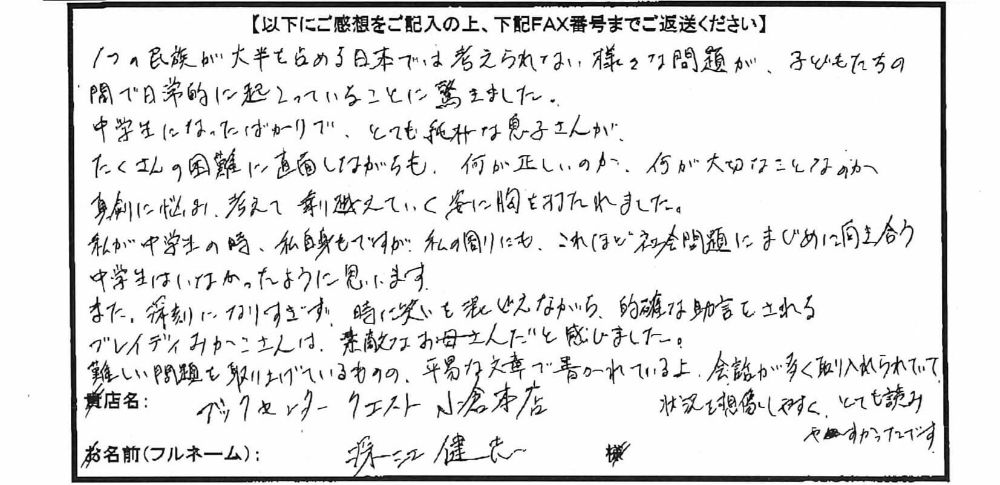 【以下にご感想をご記入の上、下記FAX番号までご返送ください】
1つの民族が大半を占める日本では考えられない様々な問題が、子どもたちの
間で日常的に起こっていることに驚きました。
中学生になったばかりで、とても純朴な息子さんが、
たくさんの困難に直面しながらも、何が正しいのか、何が大切なことなのか
真剣に悩み、考えて乗り越えていく姿に胸を打たれました。
私が中学生の時、私自身もですが、私の周りにも、これほど社会問題にまじめに向き合う
中学生はいなかったように思います。
また、深刻になりすぎず、時に笑いも混じえながら、的確な助言をされる
ブレイディみかこさんは、素敵なお母さんだと感じました。
難しい問題を取り上げているものの、平易な文章で書かれているし、会話が多く取り入れられていて
状況を想像しやすく、とても読み
やすかったです
貴店名: ブックセンタークエスト小倉本店
お名前(フルネーム): 江 健 様